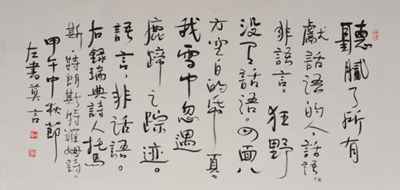 聽膩了所有
獻話語的人，話語，
非語言。狂野
没有話語。四面八
方空白的纸頁
我雪中忽遇
鹿蹄之踪迹。
語言，非話語。
右錄瑞典詩人托馬
斯·特朗斯特羅姆詩，
甲午中秋節
左書莫言